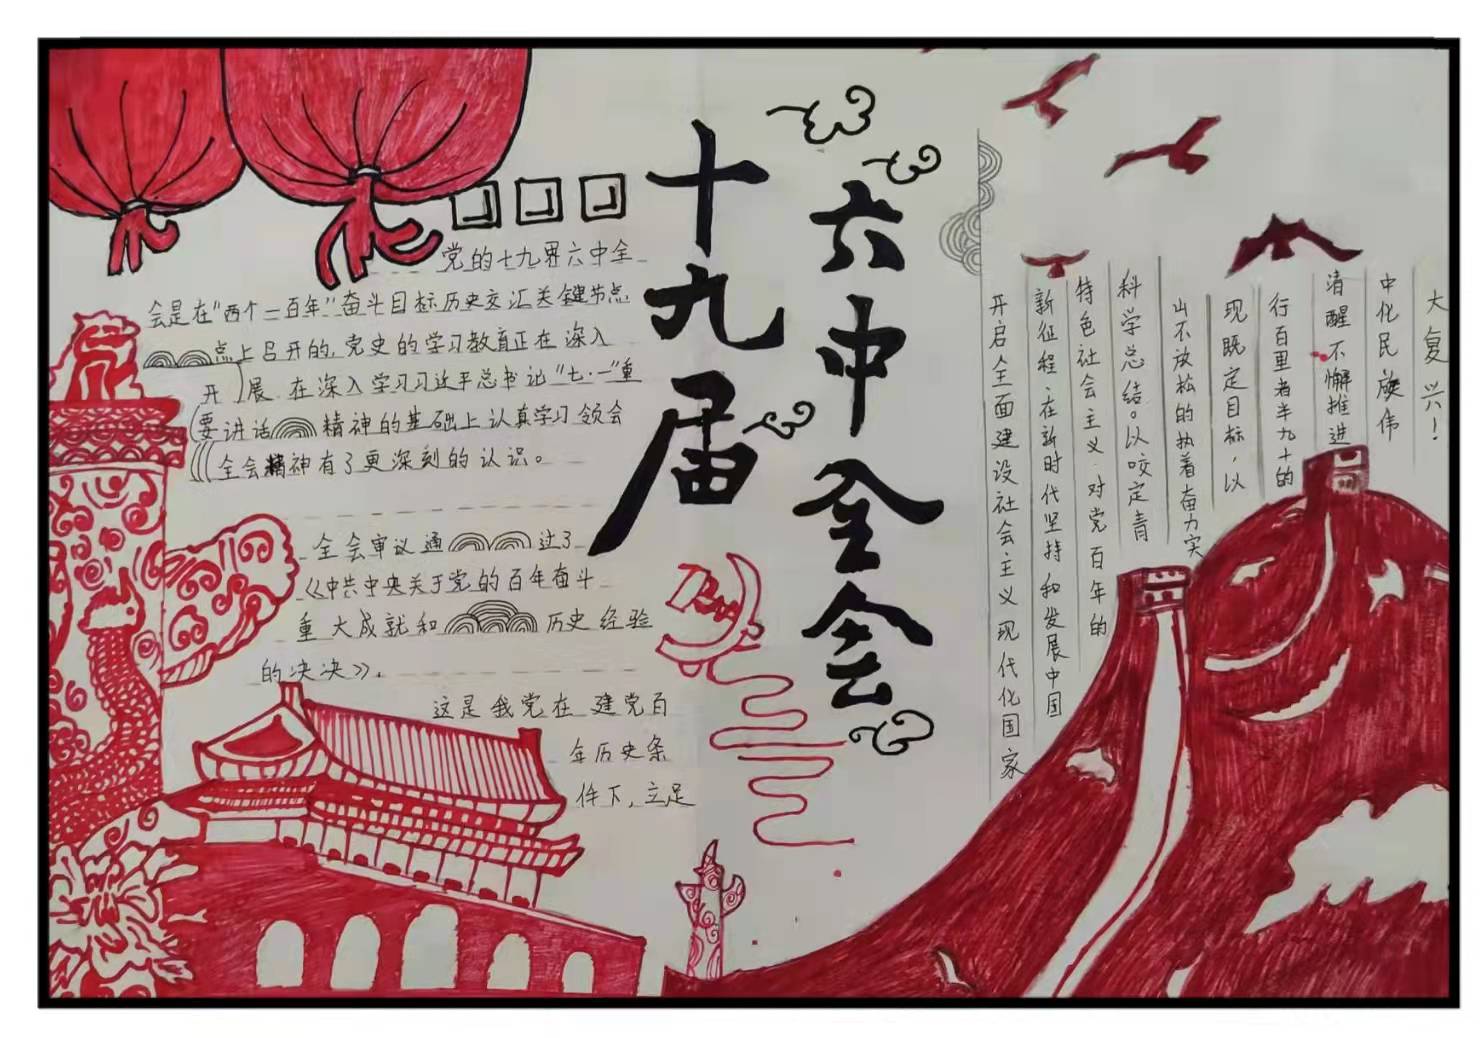 十九届
六中全会
党的十九界六中全
会是在“两个一百年”奋斗目标历史交汇关键节点
点上召开的,党史的学习教育正在深入
开展.在深入学习习近平总书记“七.一”重
要讲话精神的基础上认真学习领会
全会精神有了更深刻的认识。
全会审议通过了
《中共中央关于党的百年奋斗
重大成就和历史经验
的决决》.
这是我党在建党百
年历史条
件下,立足
开启全面建设社会主义现代化国家
新征程、在新时代坚持和发展中国
特色社会主义.对党百年的
科学总结。以咬定青
山不放松的执着奋力实
现既定目标,以
行百里者半九十的
清醒不懈推进
中化民族伟
大复兴!